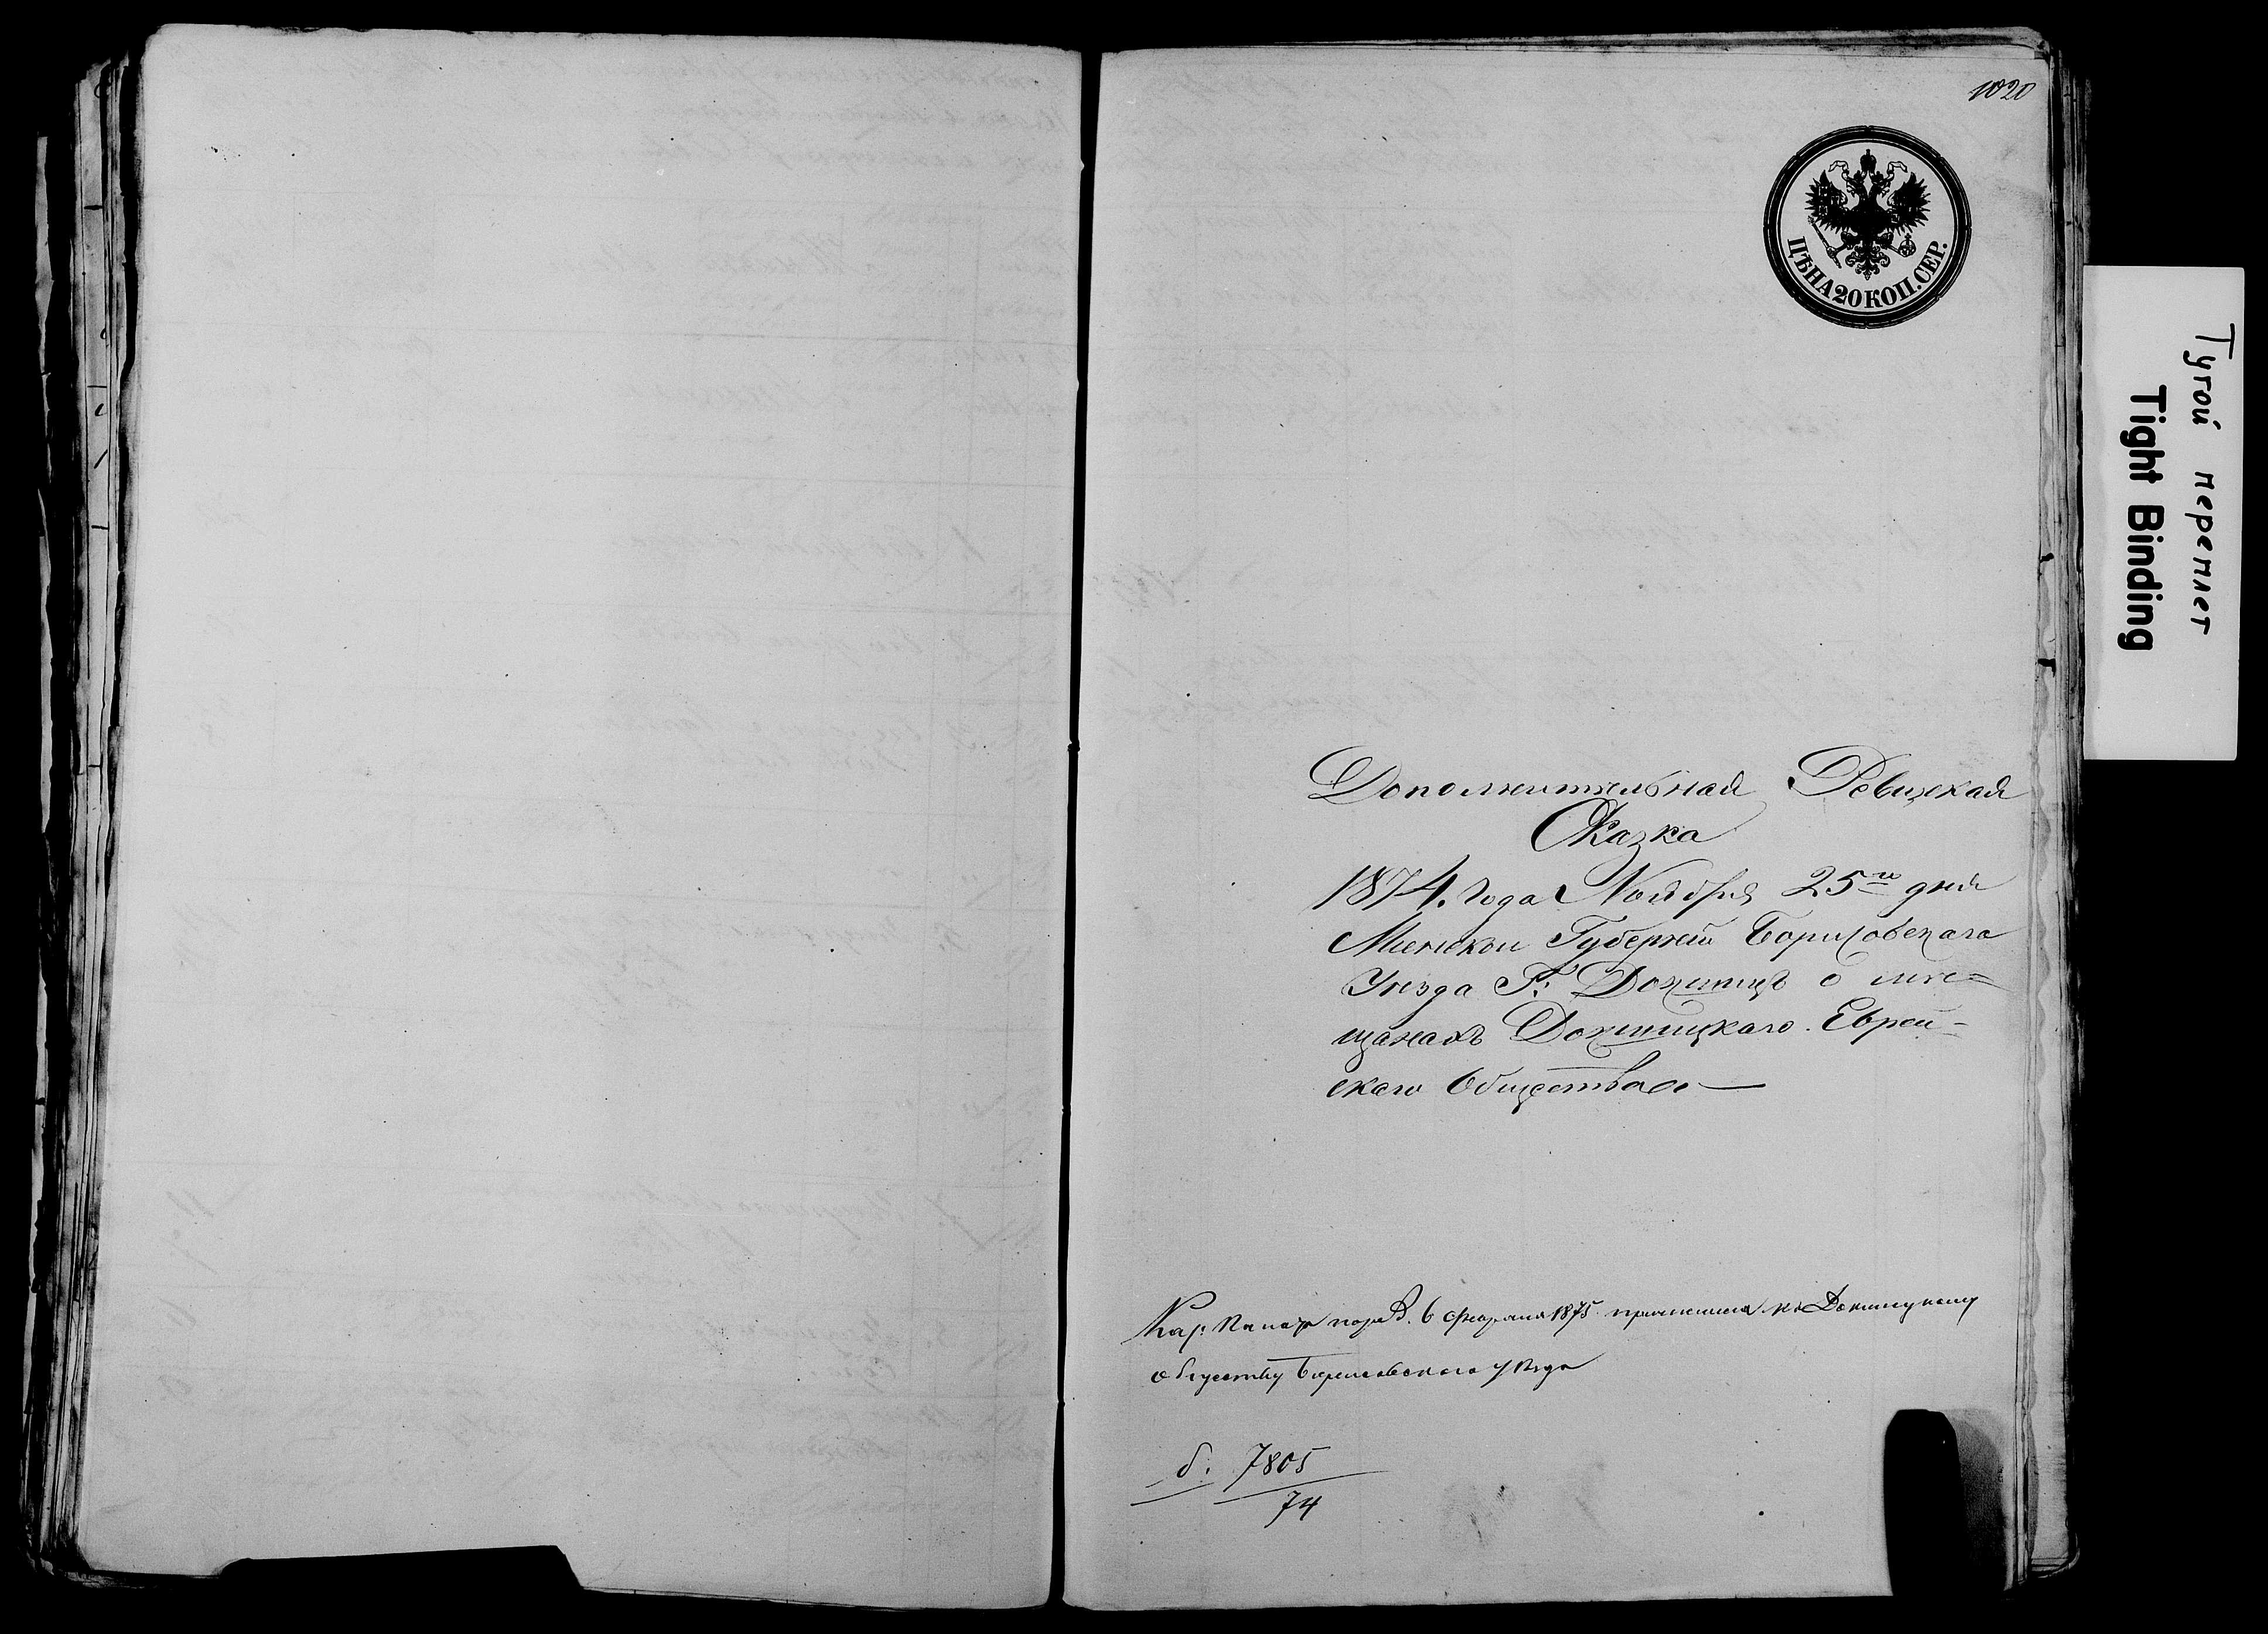 1020
ЦѢНА 20 КОП. СЕР.
Дополнительная Ревизская
Сказка
1874. Года Ноября 25го дня
Минской Губерніи Борисовскаго
Уѣзда Г: Докшицъ о мѣ=
щанахъ Докшицкаго Еврей-
скаго Общества
6 февраля 1875 къ Докшицкому
обществу Борисовского уѣзда
б. 7805
74
Тугой переплет
Tight Binding